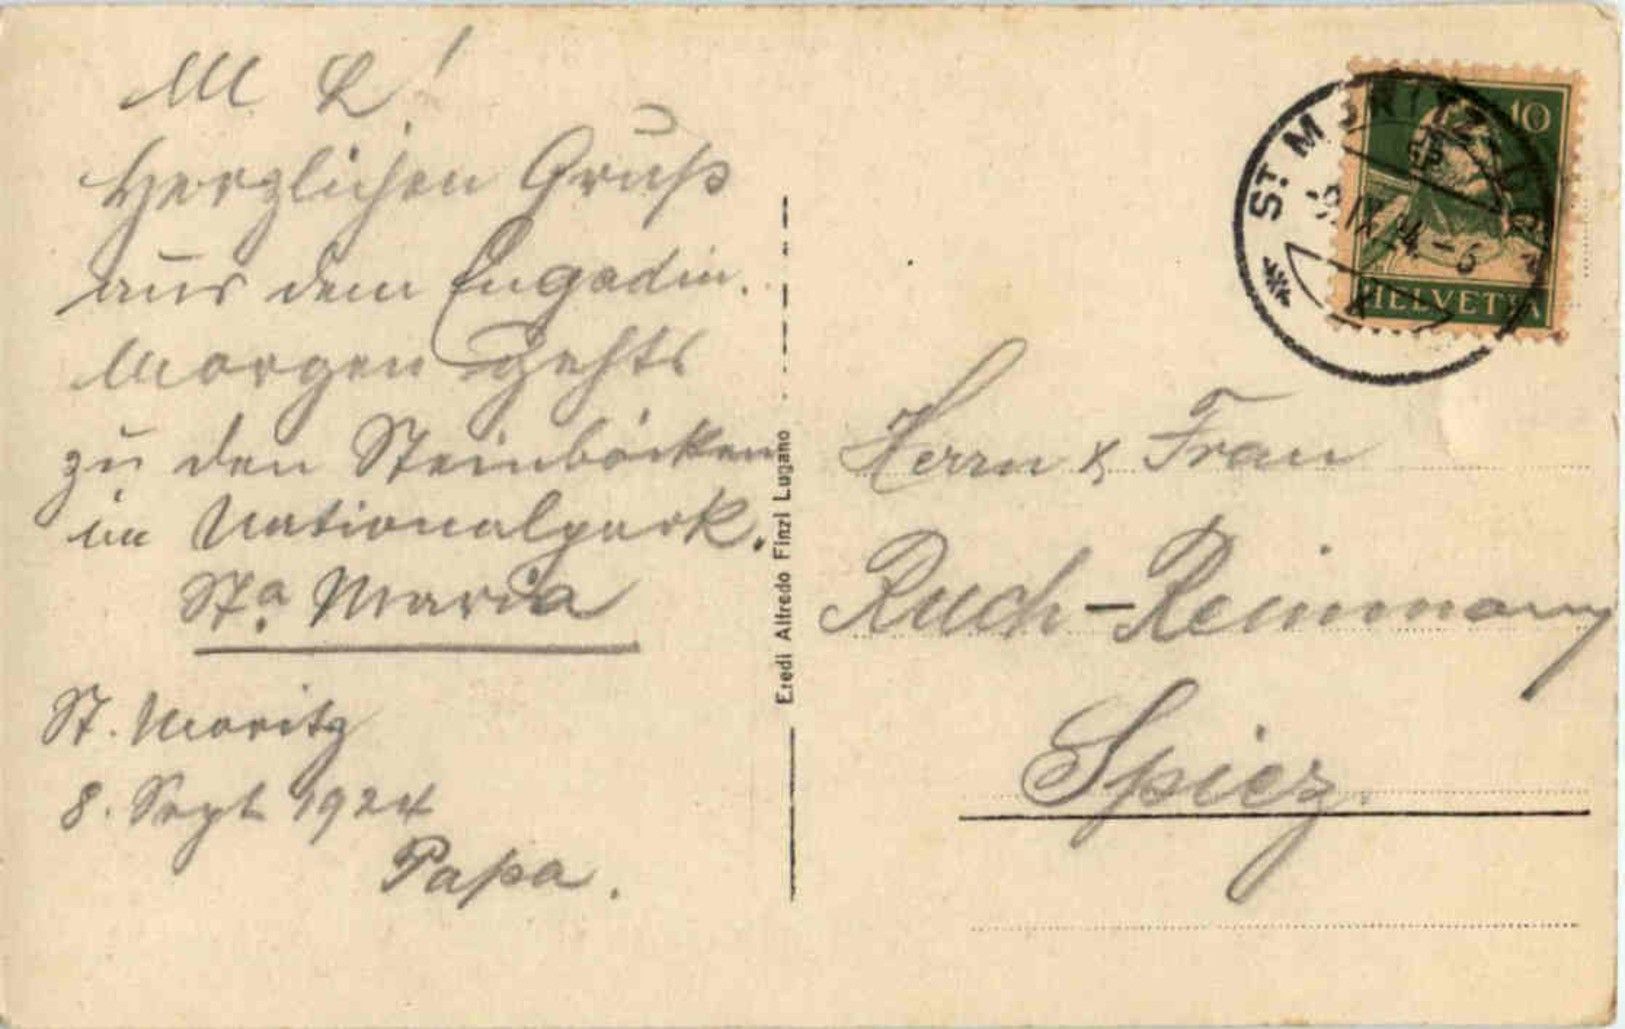 M L!
Herzlichen Gruß
aus dem Engadin.
Morgen gehts
zu den Steinböcken
im Nationalpark.
Sta. Maria
St. Moritz
8. Sept 1924
Papa.
Eredi Alfredo Finzi Lugano
ST. MORITZ
-8.IX.24.-6
10
HELVETIA
Herrn & Frau
Ruch-Reimmann
Spiez.